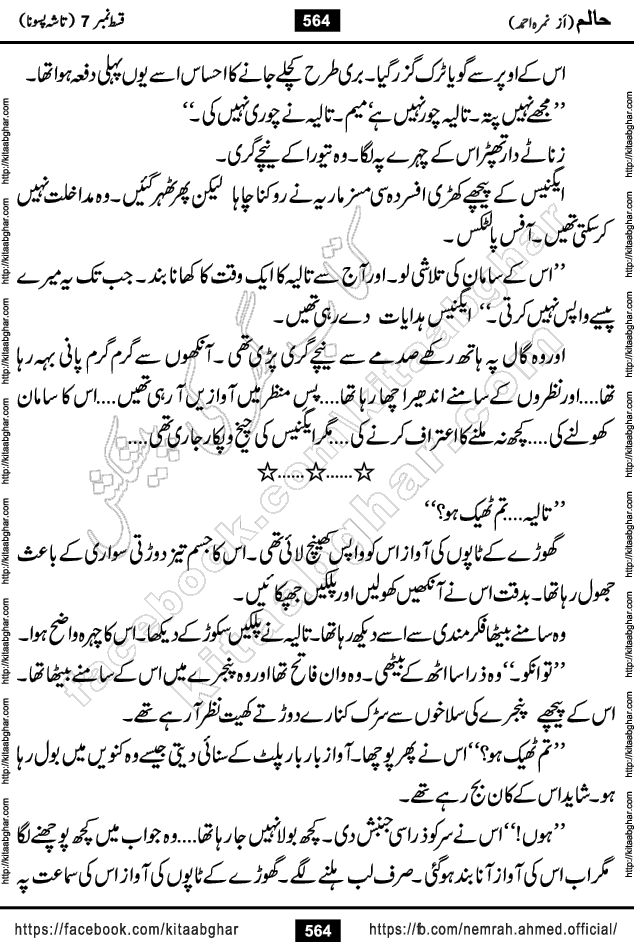 حالم (از نمرہ احمد)
564
قسط نمبر 7 (تاشہ پسونا)
اس کے اوپر سے گویا ٹرک گزر گیا۔ بری طرح کچلے جانے کا احساس اسے یوں پہلی دفعہ ہوا تھا۔
”مجھے نہیں پتہ۔ تالیہ چور نہیں ہے‘ میم۔ تالیہ نے چوری نہیں کی۔“
زناٹے دار تھپڑ اس کے چہرے پہ لگا۔ وہ تیورا کے نیچے گری۔
ایگنیس کے پیچھے کھڑی افسردہ سی مسز ماریہ نے روکنا چاہا لیکن پھر ٹھہر گئیں۔ وہ مداخلت نہیں
کر سکتی تھیں۔ آفس پالٹکس۔
”اس کے سامان کی تلاشی لو۔ اور آج سے تالیہ کا ایک وقت کا کھانا بند۔ جب تک یہ میرے
پیسے واپس نہیں کرتی۔“ ایگنیس ہدایات دے رہی تھیں۔
اور وہ گال پہ ہاتھ رکھے صدمے سے نیچے گری پڑی تھی۔ آنکھوں سے گرم گرم پانی بہہ رہا
تھا....اور نظروں کے سامنے اندھیرا چھا رہا تھا....پس منظر میں آوازیں آ رہی تھیں....اس کا سامان
کھولنے کی....کچھ نہ ملنے کا اعتراف کرنے کی....مگر ایگنیس کی چیخ و پکار جاری تھی....
☆......☆......☆
”تالیہ....تم ٹھیک ہو؟“
گھوڑے کے ٹاپوں کی آواز اس کو واپس کھینچ لائی تھی۔ اس کا جسم تیز دوڑتی سواری کے باعث
جھول رہا تھا۔ بدقت اس نے آنکھیں کھولیں اور پلکیں جھپکائیں۔
وہ سامنے بیٹھا فکرمندی سے اسے دیکھ رہا تھا۔ تالیہ نے پلکیں سکوڑ کے دیکھا۔ اس کا چہرہ واضح ہوا۔
”توانکو۔“ وہ ذرا سا اٹھ کے بیٹھی۔ وہ وان فاتح تھا اور وہ پنجرے میں اس کے سامنے بیٹھا تھا۔
اس کے پیچھے پنجرے کی سلاخوں سے سڑک کنارے دوڑتے کھیت نظر آ رہے تھے۔
”تم ٹھیک ہو؟“ اس نے پھر پوچھا۔ آواز بار بار پلٹ کے سنائی دیتی جیسے وہ کنویں میں بول رہا
ہو۔ شاید اس کے کان بج رہے تھے۔
”ہوں!“ اس نے سر کو ذرا سی جنبش دی۔ کچھ بولا نہیں جا رہا تھا....وہ جواب میں کچھ پوچھنے لگا
مگر اب اس کی آواز آنا بند ہو گئی۔ صرف لب ہلنے لگے۔ گھوڑے کے ٹاپوں کی آواز اس کی سماعت پہ
https://facebook.com/kitaabghar
564
https://fb.com/nemrah.ahmed.official/
http://kitaabghar.com http://kitaabghar.com http://kitaabghar.com http://kitaabghar.com http://kitaabghar.com http://kitaabghar.com http://kitaabghar.com http://kitaabghar.com
http://kitaabghar.com http://kitaabghar.com http://kitaabghar.com http://kitaabghar.com http://kitaabghar.com http://kitaabghar.com http://kitaabghar.com http://kitaabghar.com
کتاب گھر کی پیشکش
facebook.com/kitaabghar
kitaabghar.com